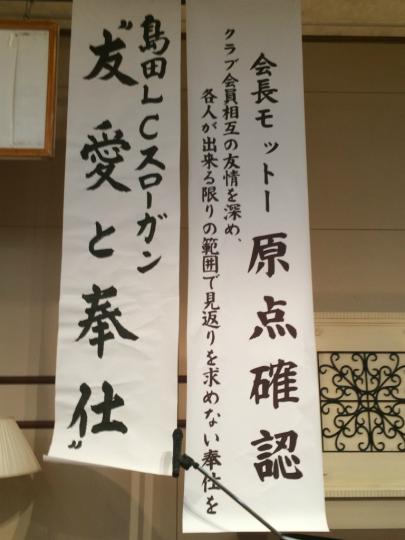 会長モットー 原点確認
クラブ会員相互の友情を深め、
各人が出来る限りの範囲で見返りを求めない奉仕を
島田LCスローガン
"友愛と奉仕"